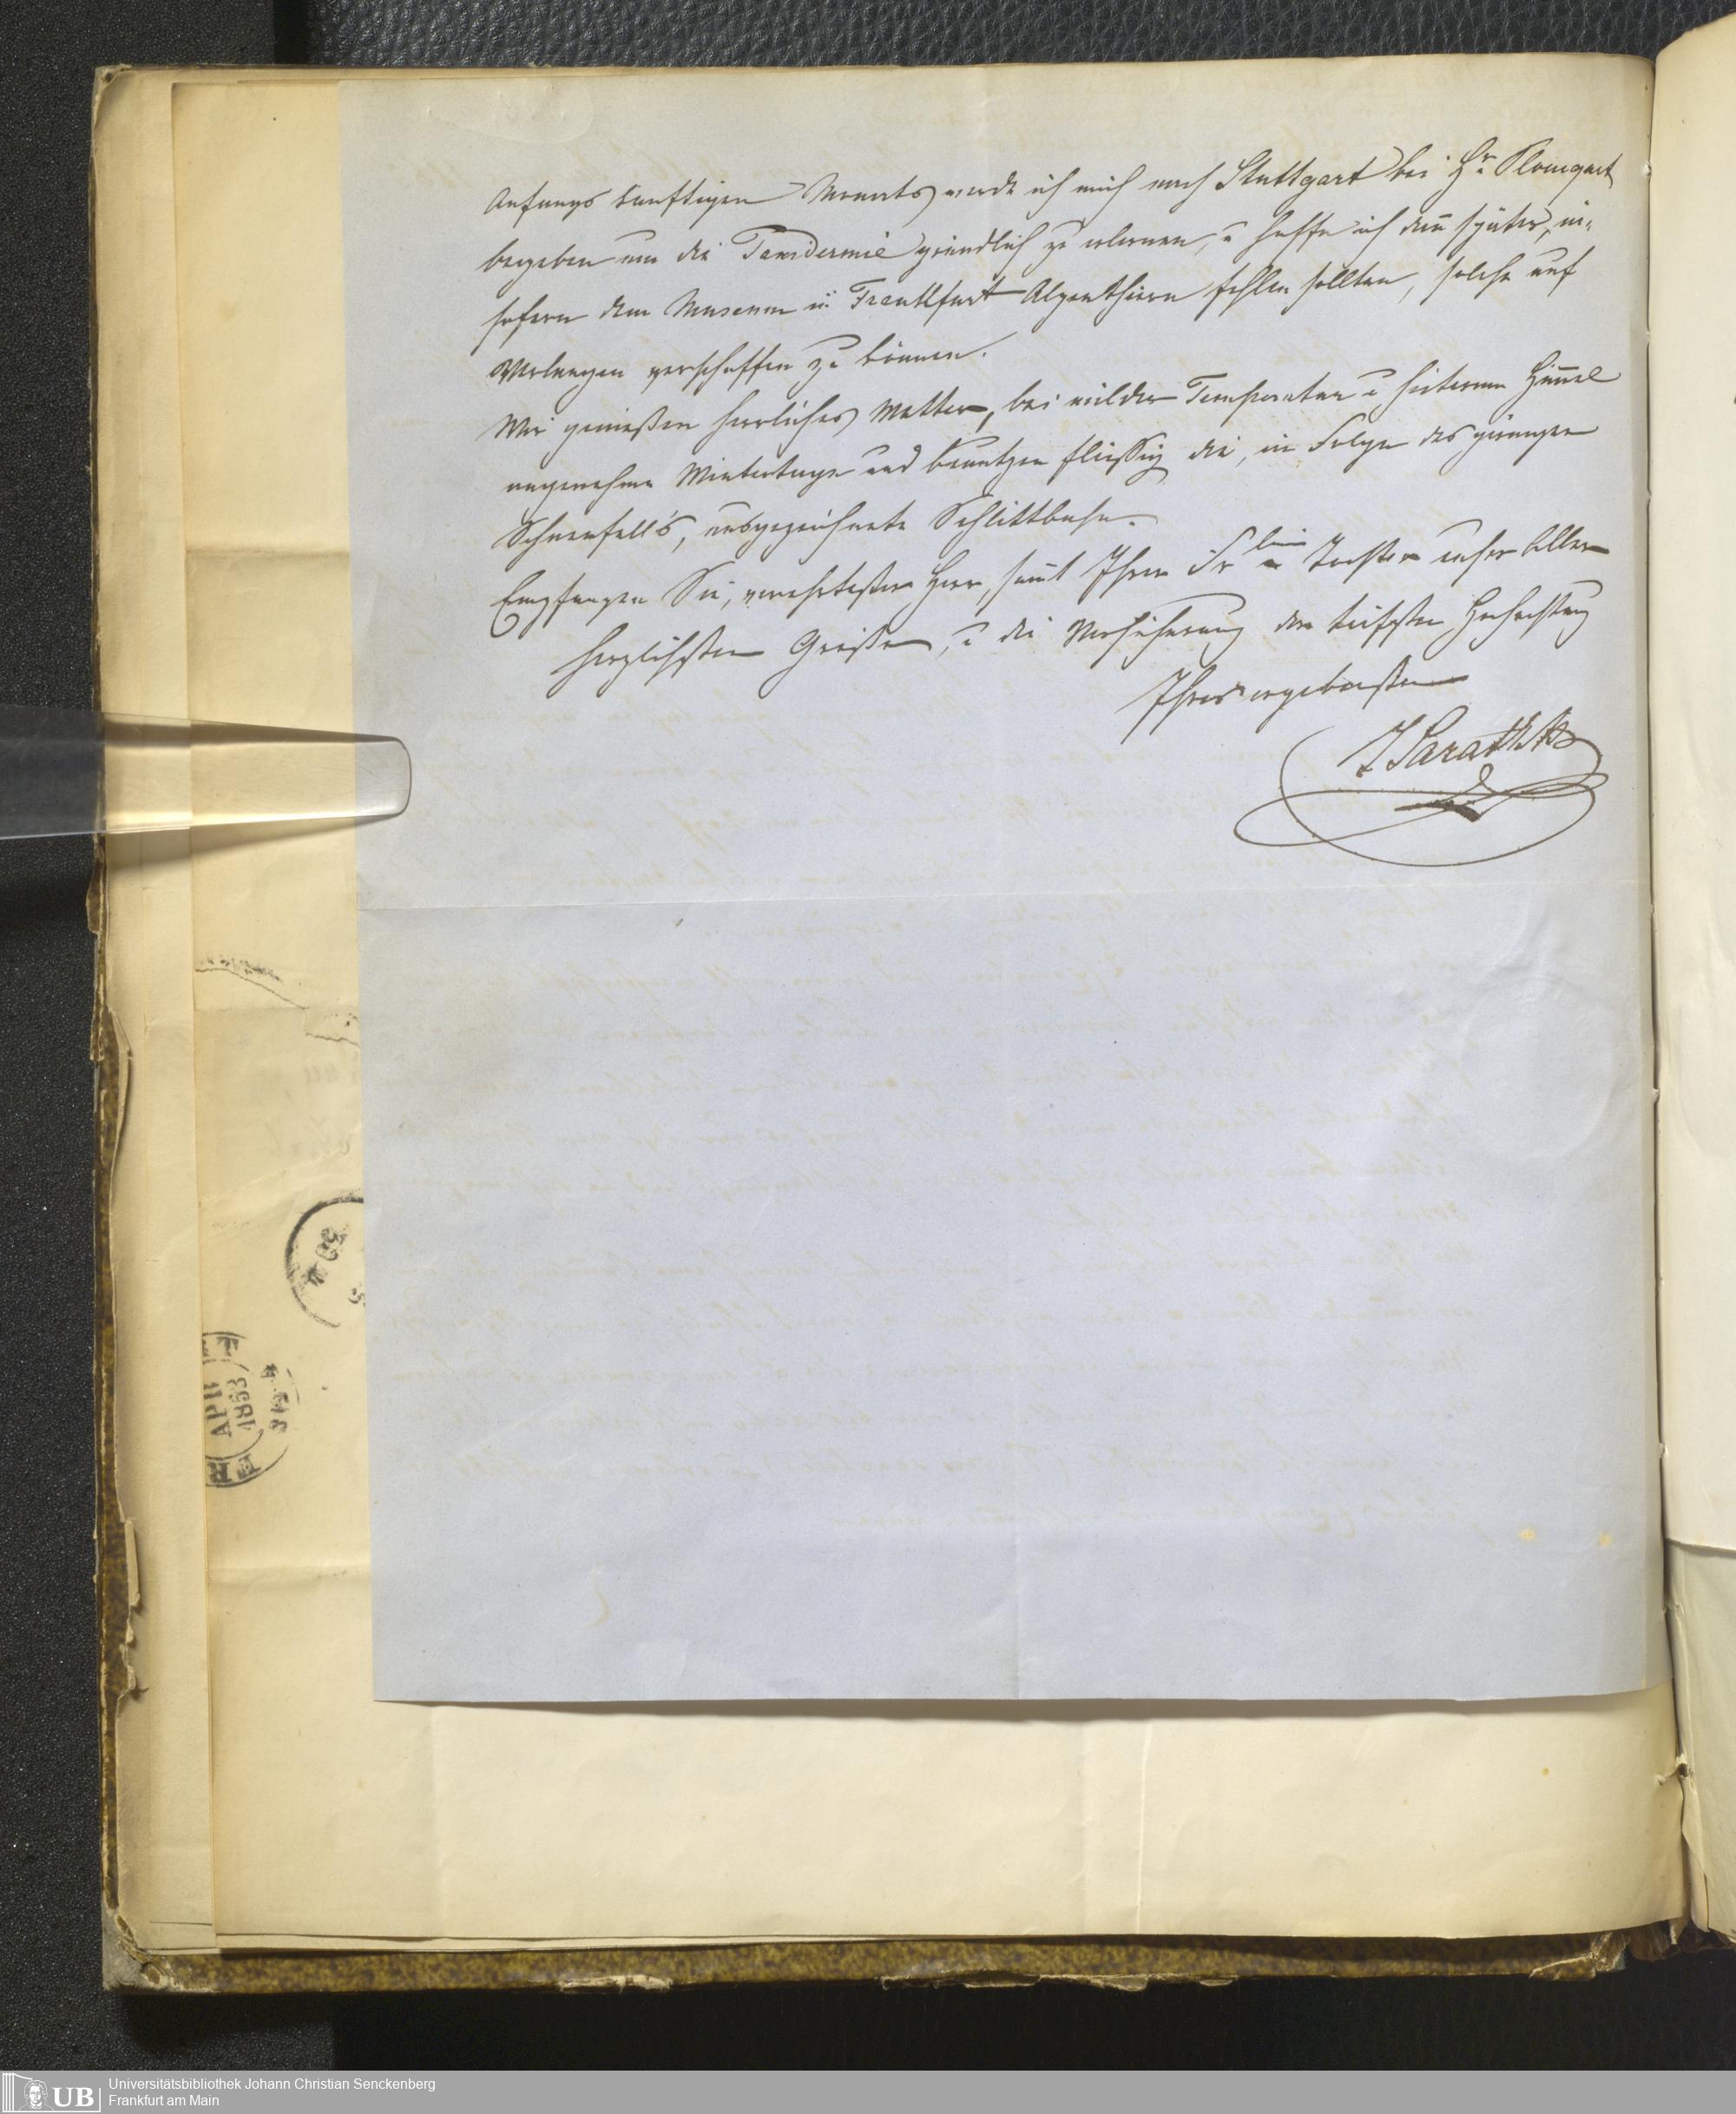 Anfangs künftigen Monats werde ich mich nach Stuttgart bei Hr. Ploucquet
begeben um die Taxidermie gründlich zu erlernen, u hoffe ich dan̄ später, in-
sofern dem Museum in Frankfurt Alpenthiere fehlen sollten, solche auf
Verlangen verschaffen zu können.
Wir genießen herrliches Wetter, bei milder Temperatur u heiterem Him̄el
angenehme Wintertage und benutzen fleißig die, in Folge des geringen
Schneefall's, ausgezeichnete Schlittbahn.
Empfangen Sie, verehrtester Herr, sam̄t Ihrer Frln Tochter unser Aller
herzlichsten Grüße, u die Versicherung der tiefsten Hochachtung
Ihres ergebensten
J Saratz
APR
1853
FR
UB Universitätsbibliothek Johann Christian Senckenberg
Frankfurt am Main